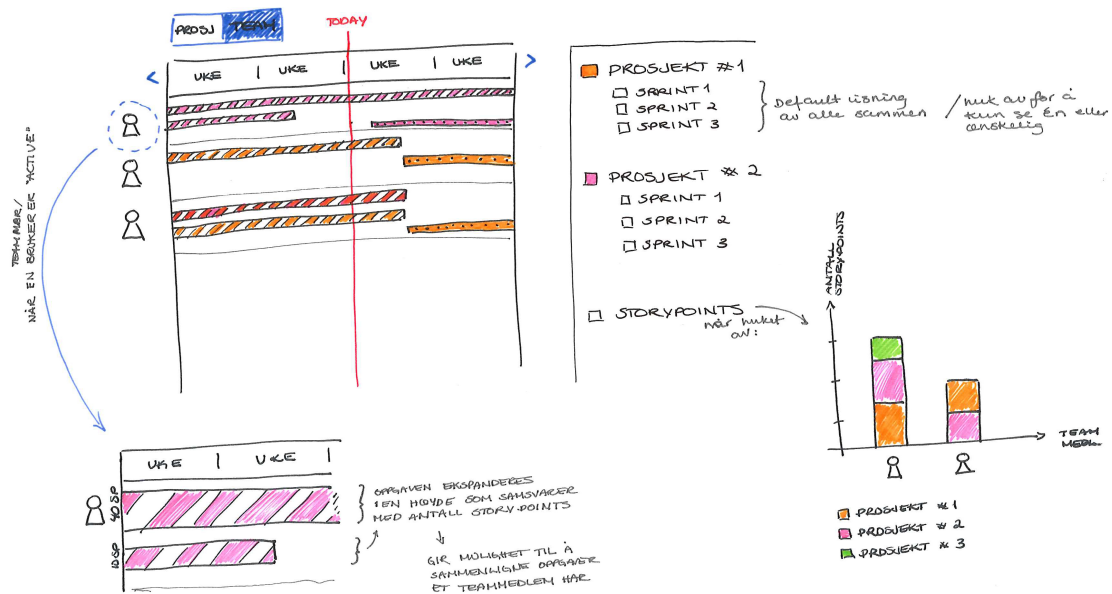 PROSJ TEAM
TODAY
< UKE | UKE | UKE | UKE >
TEAM MBR/
NÅR EN BRUKER ER "ACTIVE"
PROSJEKT #1
SPRINT 1
SPRINT 2
SPRINT 3
Default visning
av alle sammen
/huk av for å
kun se én eller
PROSJEKT # 2
SPRINT 1
SPRINT 2
SPRINT 3
STORYPOINTS
når huket
av:
ANTALL
STORYPOINTS
TEAM
MEDL.
PROSJEKT # 1
PROSJEKT # 2
PROSJEKT # 3
UKE | UKE |
40 SP
10 SP
OPPGAVEN EKSPANDERES
I EN HØYDE SOM SAMSVARER
MED ANTALL STORYPOINTS
GIR MULIGHET TIL Å
SAMMENLIGNE OPPGAVER
ET TEAMMEDLEM HAR